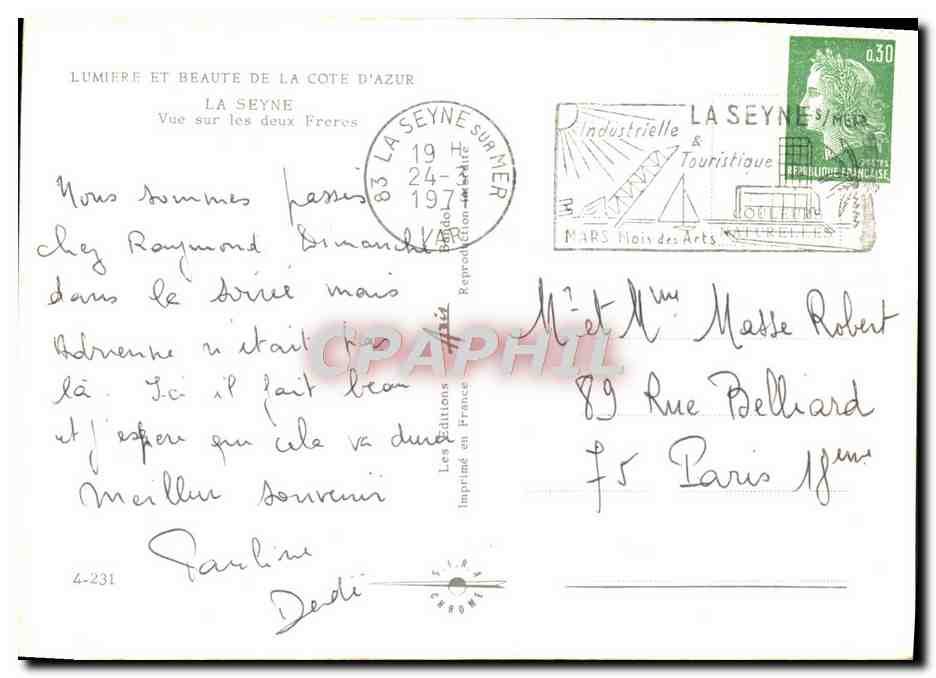 LUMIERE ET BEAUTE DE LA COTE D'AZUR
LA SEYNE
Vue sur les deux Freres
83 LA SEYNE SUR MER
19 H
24-3
1971
VAR
LA SEYNE S/MER
Industrielle
&
Touristique
MARS Mois des Arts
COULEURS
NATURELLES
0,30
POSTES
REPUBLIQUE FRANCAISE
Nous sommes passés
chez Raymond Dimanche
dans la soirée mais
Adrienne n'était pas
là. Ici il fait beau
et j'espère que cela va durer
Meilleur souvenir
Pauline
Dédé
Mr et Mme Masse Robert
89 Rue Belliard
75 Paris 18eme
Les Editions Aris Bandol
Imprimé en France Reproduction interdite
CPAPHIL
4-231
CHROME